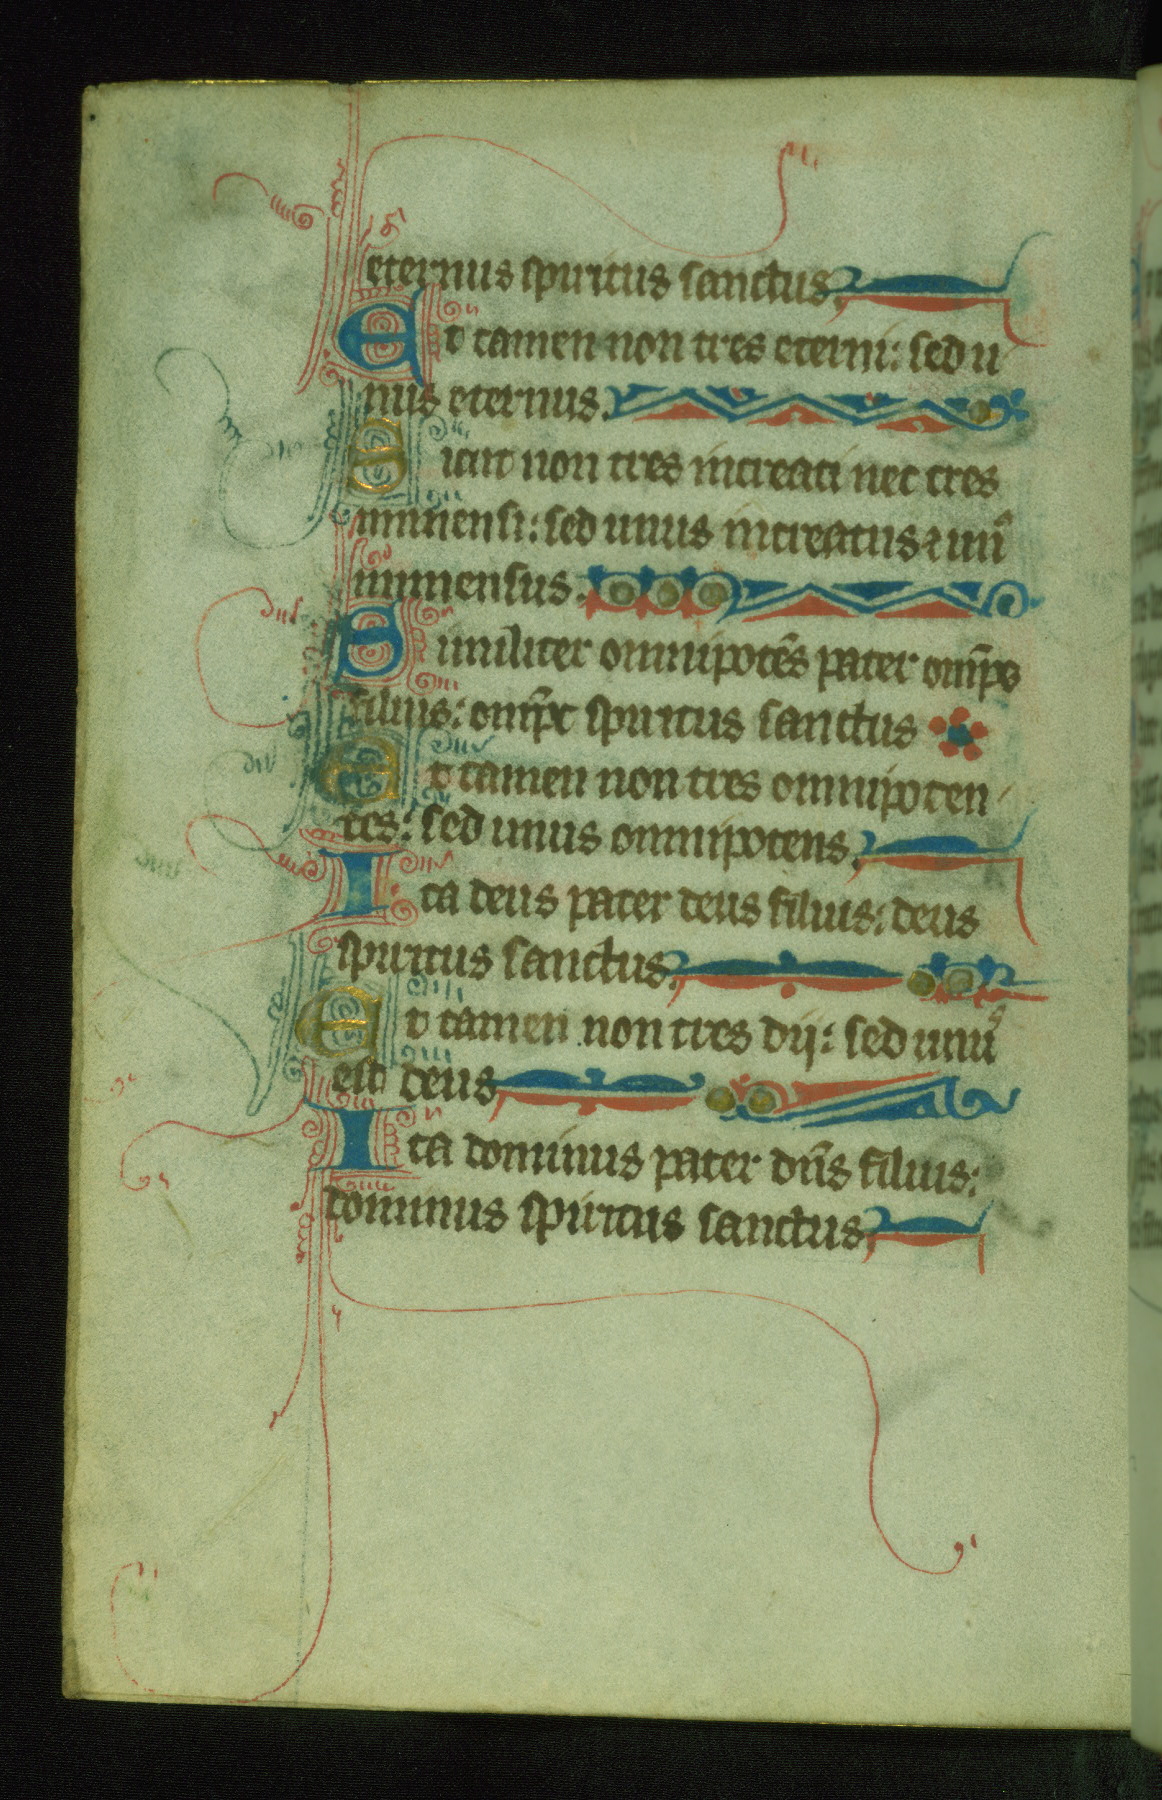 eternus spiritus sanctus.
Et tamen non tres eterni: sed u
nus eternus.
Sicut non tres increati nec tres
immensi: sed unus increatus ⁊ unꝰ
immensus.
Similiter omnipotēs pater omīps
filius: omīpt spiritus sanctus
Et tamen non tres omnipoten
tes: sed unus omnipotens.
Ita deus pater deus filius: deus
spiritus sanctus.
Et tamen non tres dij: sed unuꝰ
est deus
Ita dominus pater dn̄s filius:
dominus spiritus sanctus.